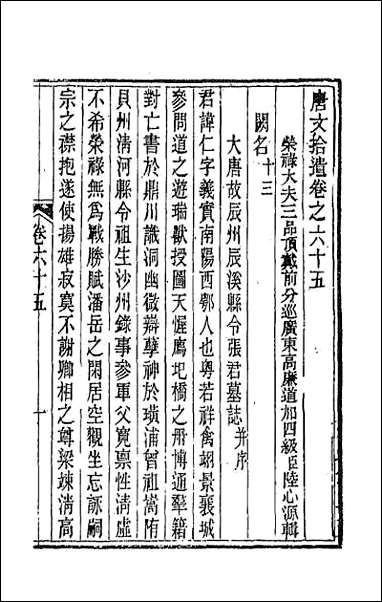 唐文拾遺卷之六十五
榮祿大夫三品頂戴前分巡廣東高廉道加四級臣陸心源輯
闕名十三
大唐故辰州辰溪縣令張君墓誌并序
君諱仁字義實南陽西鄂人也粵若祥禽翊景襄城
參問道之遊瑞獸授圖天渥膺圯橋之册博通羣籍
對亡書於鼎川識洞幽微辯孽神於璜浦曾祖嵩隋
貝州清河縣令祖生沙州錄事參軍父寬稟性清虛
不希榮祿無爲戰勝賦潘岳之閑居空觀坐忘詠嗣
宗之襟抱遂使揚雄寂寞不謝卿相之尊梁竦清高
卷六十五
一